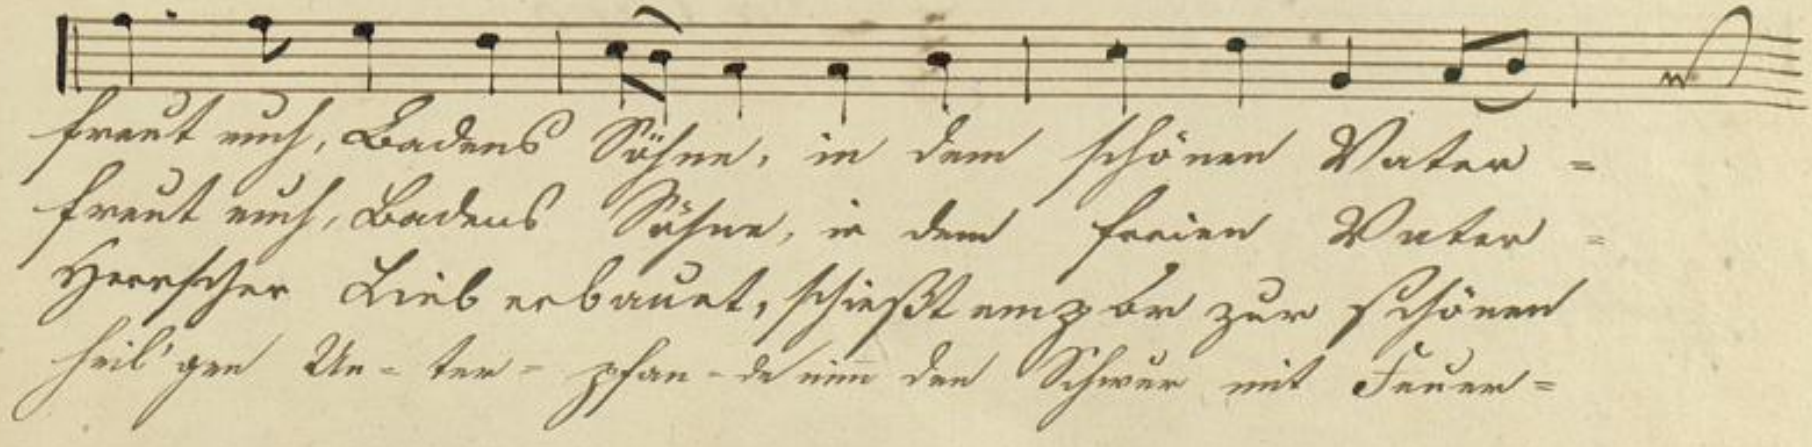 freut euch, Badens Söhne, in dem schönen Vater =
freut euch, Badens Söhne, in dem freien Vater =
Herrscher Lieb erbauet, schießt empor zur schönen
heil'gen Un - ter - pfan - de nim̅ den Schwur mit Feuer =